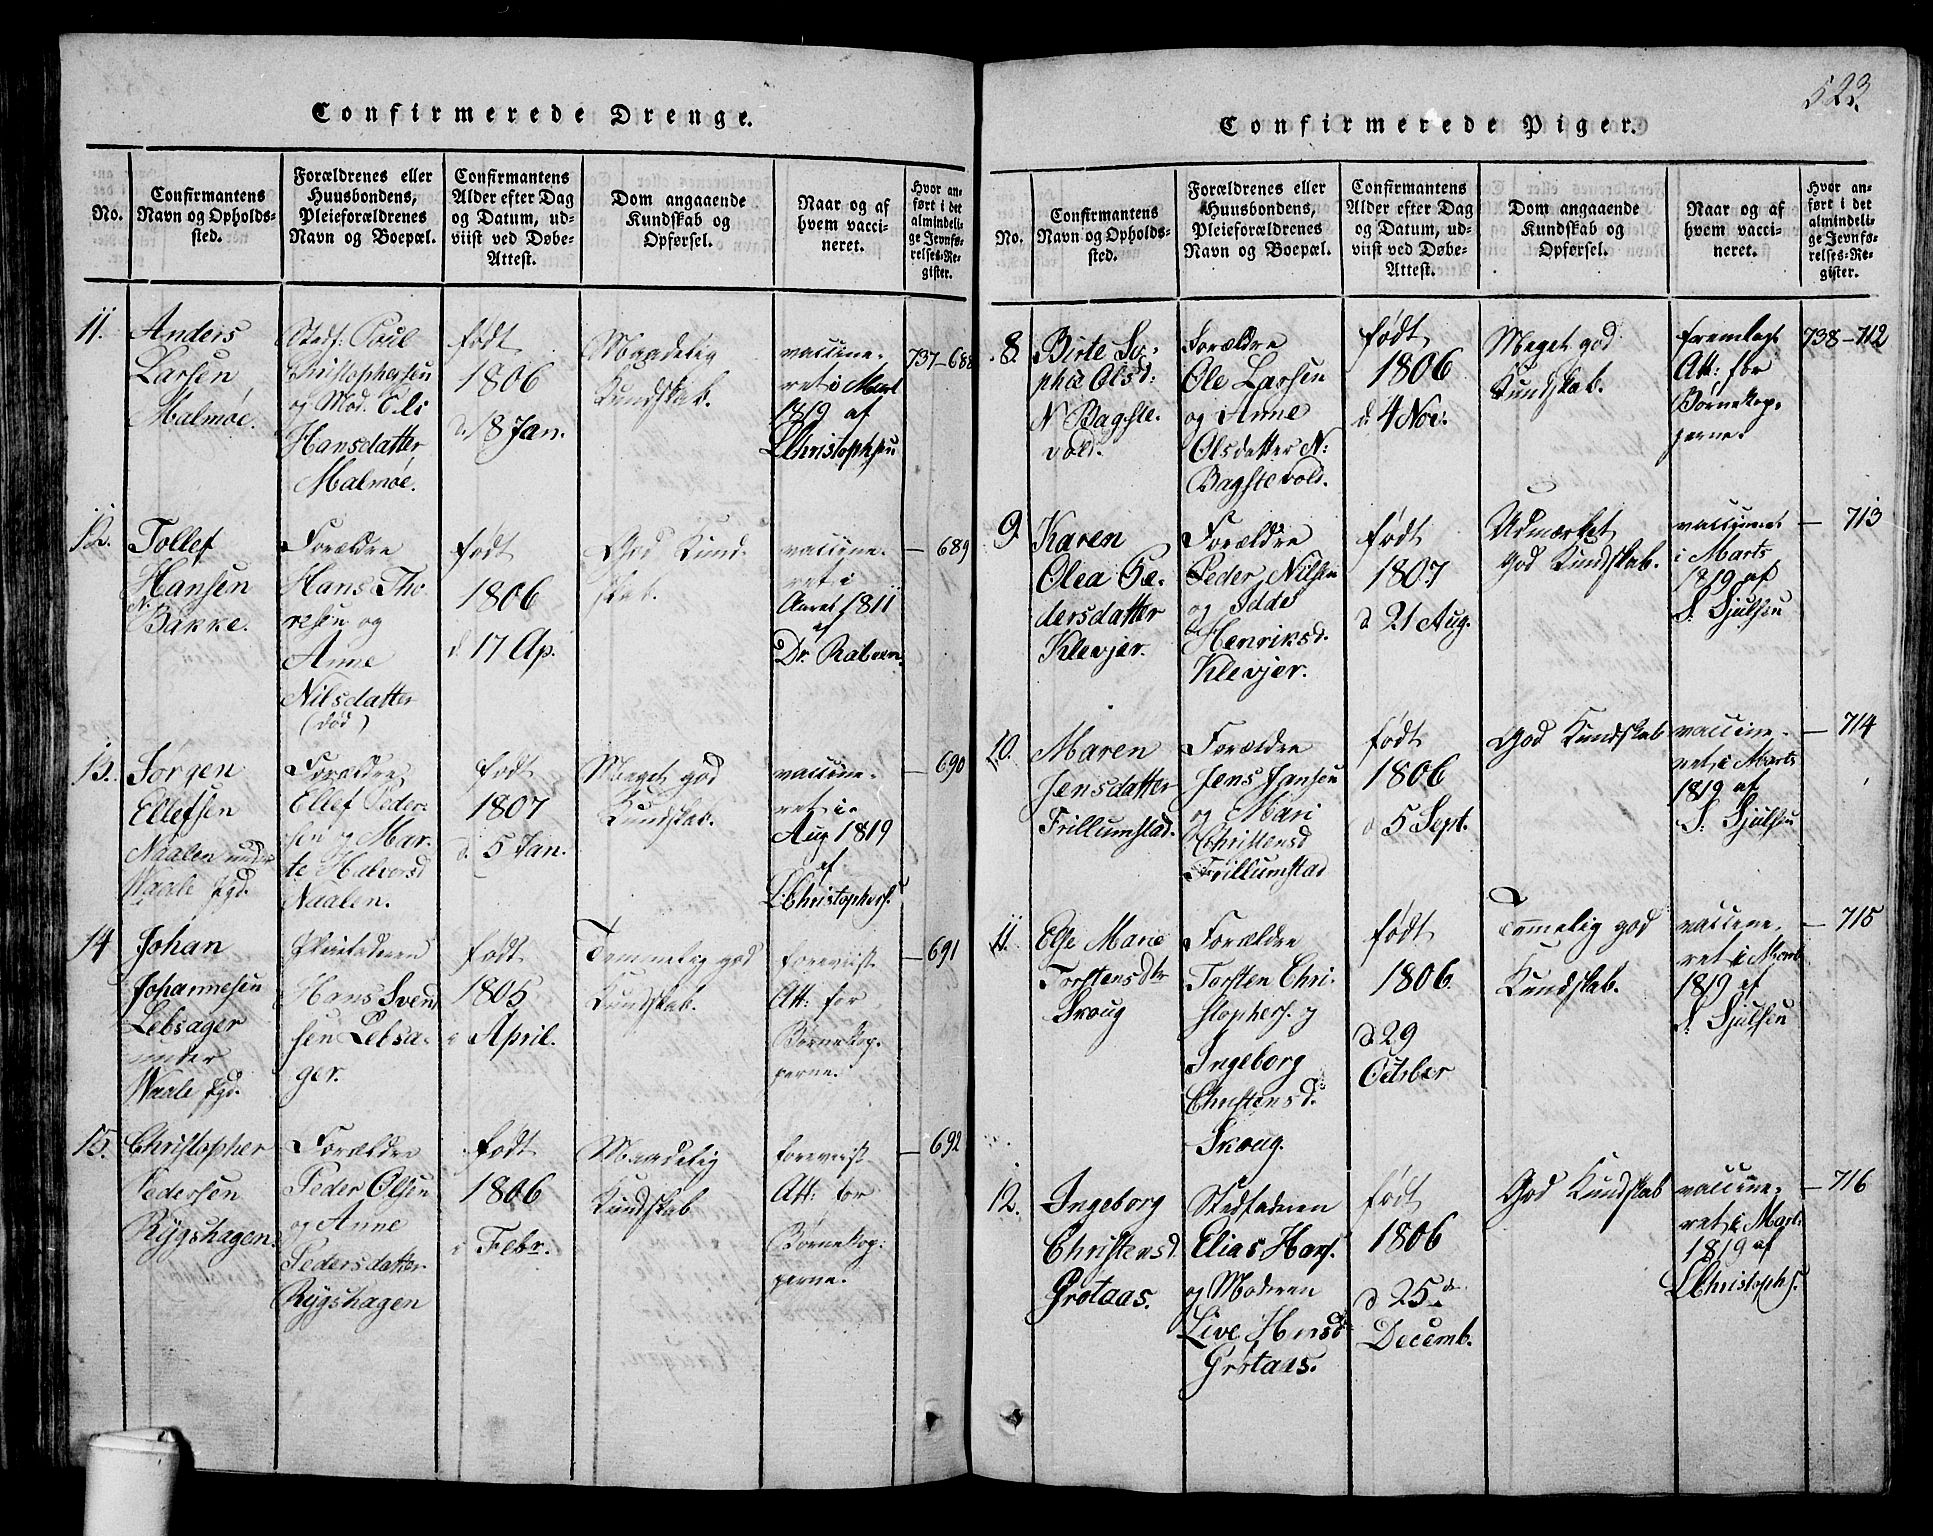 523
Confirmerede Drenge.
No.
Confirmantens
Navn og Opholds-
sted.
Forældrenes eller
Huusbondens,
Pleieforældrenes
Navn og Boepæl.
Confirmantens
Alder efter Dag
og Datum, ud-
viist ved Døbe-
Attest.
Dom angaaende
Kundskab og
Opførsel.
Naar og af
hvem vacci-
neret.
Hvor an-
ført i det
almindeli-
ge Jevnfø-
relses-Re-
gister.
11.
Anders
Larsen
Malmøe.
Stedf: Poul
Christophersen
og Mod.
Hansdatter
Malmøe.
født
1806
d. 18 Jan.
Maadelig
Kundskab.
vaccine-
ret i Mart
1819 af
LChristophsen
737-688
12.
Tollef
Hansen
N. Bakke.
Forældre
Hans Tho-
resen og
Anne
Nilsdatter
(død)
født
1806
d 17 Ap.
God Kund-
skab.
vaccine-
ret i
Aaret 1811
af
Dr. Rabeen
— 689
13.
Jørgen
Ellefsen
Naalen under
Waale Pgd.
Forældre
Ellef Peder-
sen og Mar-
te Halvorsd
Naalen.
født
1807
d. 5 Jan.
Meget god
Kundskab.
vaccine-
ret i
Aug 1819
af
LChristophers.
— 690
14
Johan
Johannesen
Lebsager
under
Waale Pgd.
Pleiefaderen
Hans Svend
sen Lebsa-
ger.
født
1805
i April.
Temmelig god
Kundskab.
foreviist
Att: for
Børnekop-
perne.
— 691
15.
Christopher
Pedersen
Rygshagen.
Forældre
Peder Olsen
og Anne
Pedersdatter
Rygshagen
født
1806
i Febr.
Maadelig
Kundskab
foreviist
Att: for
Børnekop-
perne.
— 692
Confirmerede Piger.
No.
Confirmantens
Navn og Opholds-
sted.
Forældrenes eller
Huusbondens,
Pleieforældrenes
Navn og Boepæl.
Confirmantens
Alder efter Dag
og Datum, ud-
viist ved Døbe-
Attest.
Dom angaaende
Kundskab og
Opførsel.
Naar og af
hvem vacci-
neret.
Hvor an-
ført i det
almindeli-
ge Jevnfø-
relses-Re-
gister.
8.
Birte So-
phie Olsd:
N Bagste-
vold.
Forældre
Ole Larsen
og Anne
Olsdatter N:
Bagstevold.
født
1806
d 4 Nov:
Meget god
Kundskab.
fremlagt
Att: for
Børnekop-
perne.
738-712
9.
Karen
Olea Pe-
dersdatter
Klevjer.
Forældre
Peder Nilsen
og Idde
Henriksd.
Klevjer.
født
1807
d 21 Aug.
Udmærket
god Kundskab.
vaccineret
i Marts
1819 af
S. Sjulsen
— 713
10.
Maren
Jensdatter
Trillumstad.
Forældre
Jens Jansen
og Mari
Christensd
Trillumstad
født
1806
d 5 Sept.
God Kundskab
vaccine-
ret i Marts
1819 af
S. Sjulsen
— 714
11.
Else Marie
Torstensdtr
Skoug
Forældre
Torsten Chri-
stophers. og
Ingeborg
Christensd.
Skoug.
født
1806
d. 29
October
Temmelig god
Kundskab.
vaccine-
ret i Marts
1819 af
S. Sjulsen
— 715
12.
Ingeborg
Christensd.
Grøtaas.
Stedfaderen
Elias Hans.
og Moderen
Live Hansd
Grøtaas.
født
1806
d 25de
Decemb.
God Kundskab
vaccine-
ret i Mart
1819 af
LChristophs.
— 716